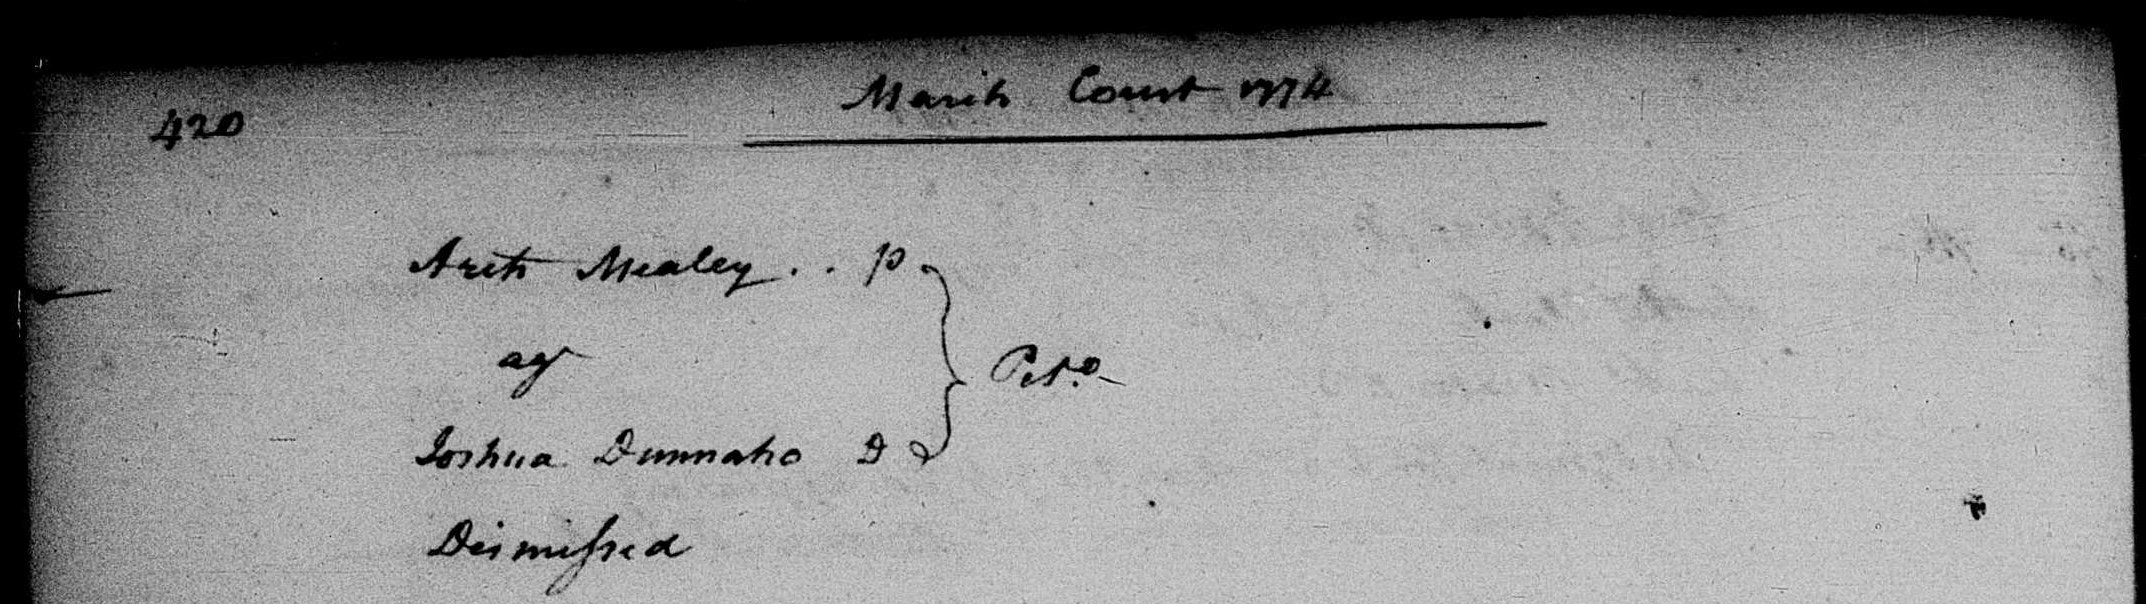 420
March Court 1774
Arch Mealey . . P
ag
Pet.o
Joshua Dunnaho D
Dismissed